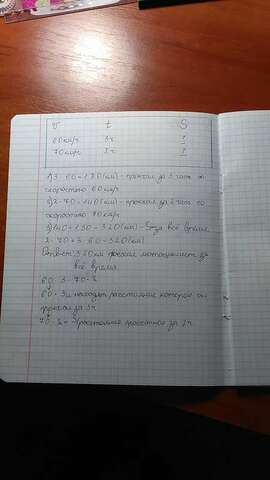 v t S
60 км/ч 3ч ?
70 км/ч 2ч ?
1) 3 · 60 = 180 (км) - проехал за 3 часа со
скоростью 60 км/ч
2) 2 · 70 = 140 (км) - проехал за 2 часа со
скоростью 70 км/ч
3) 140 + 180 = 320 (км) - S за всё время
2 · 70 + 3 · 60 = 320 (км)
Ответ: 320 км проехал мотоциклист за
всё время
60 · 3 70 · 2
60 · 3 расстояние которое он
проехал за 3ч
70 · 2 = расстояние за 2ч